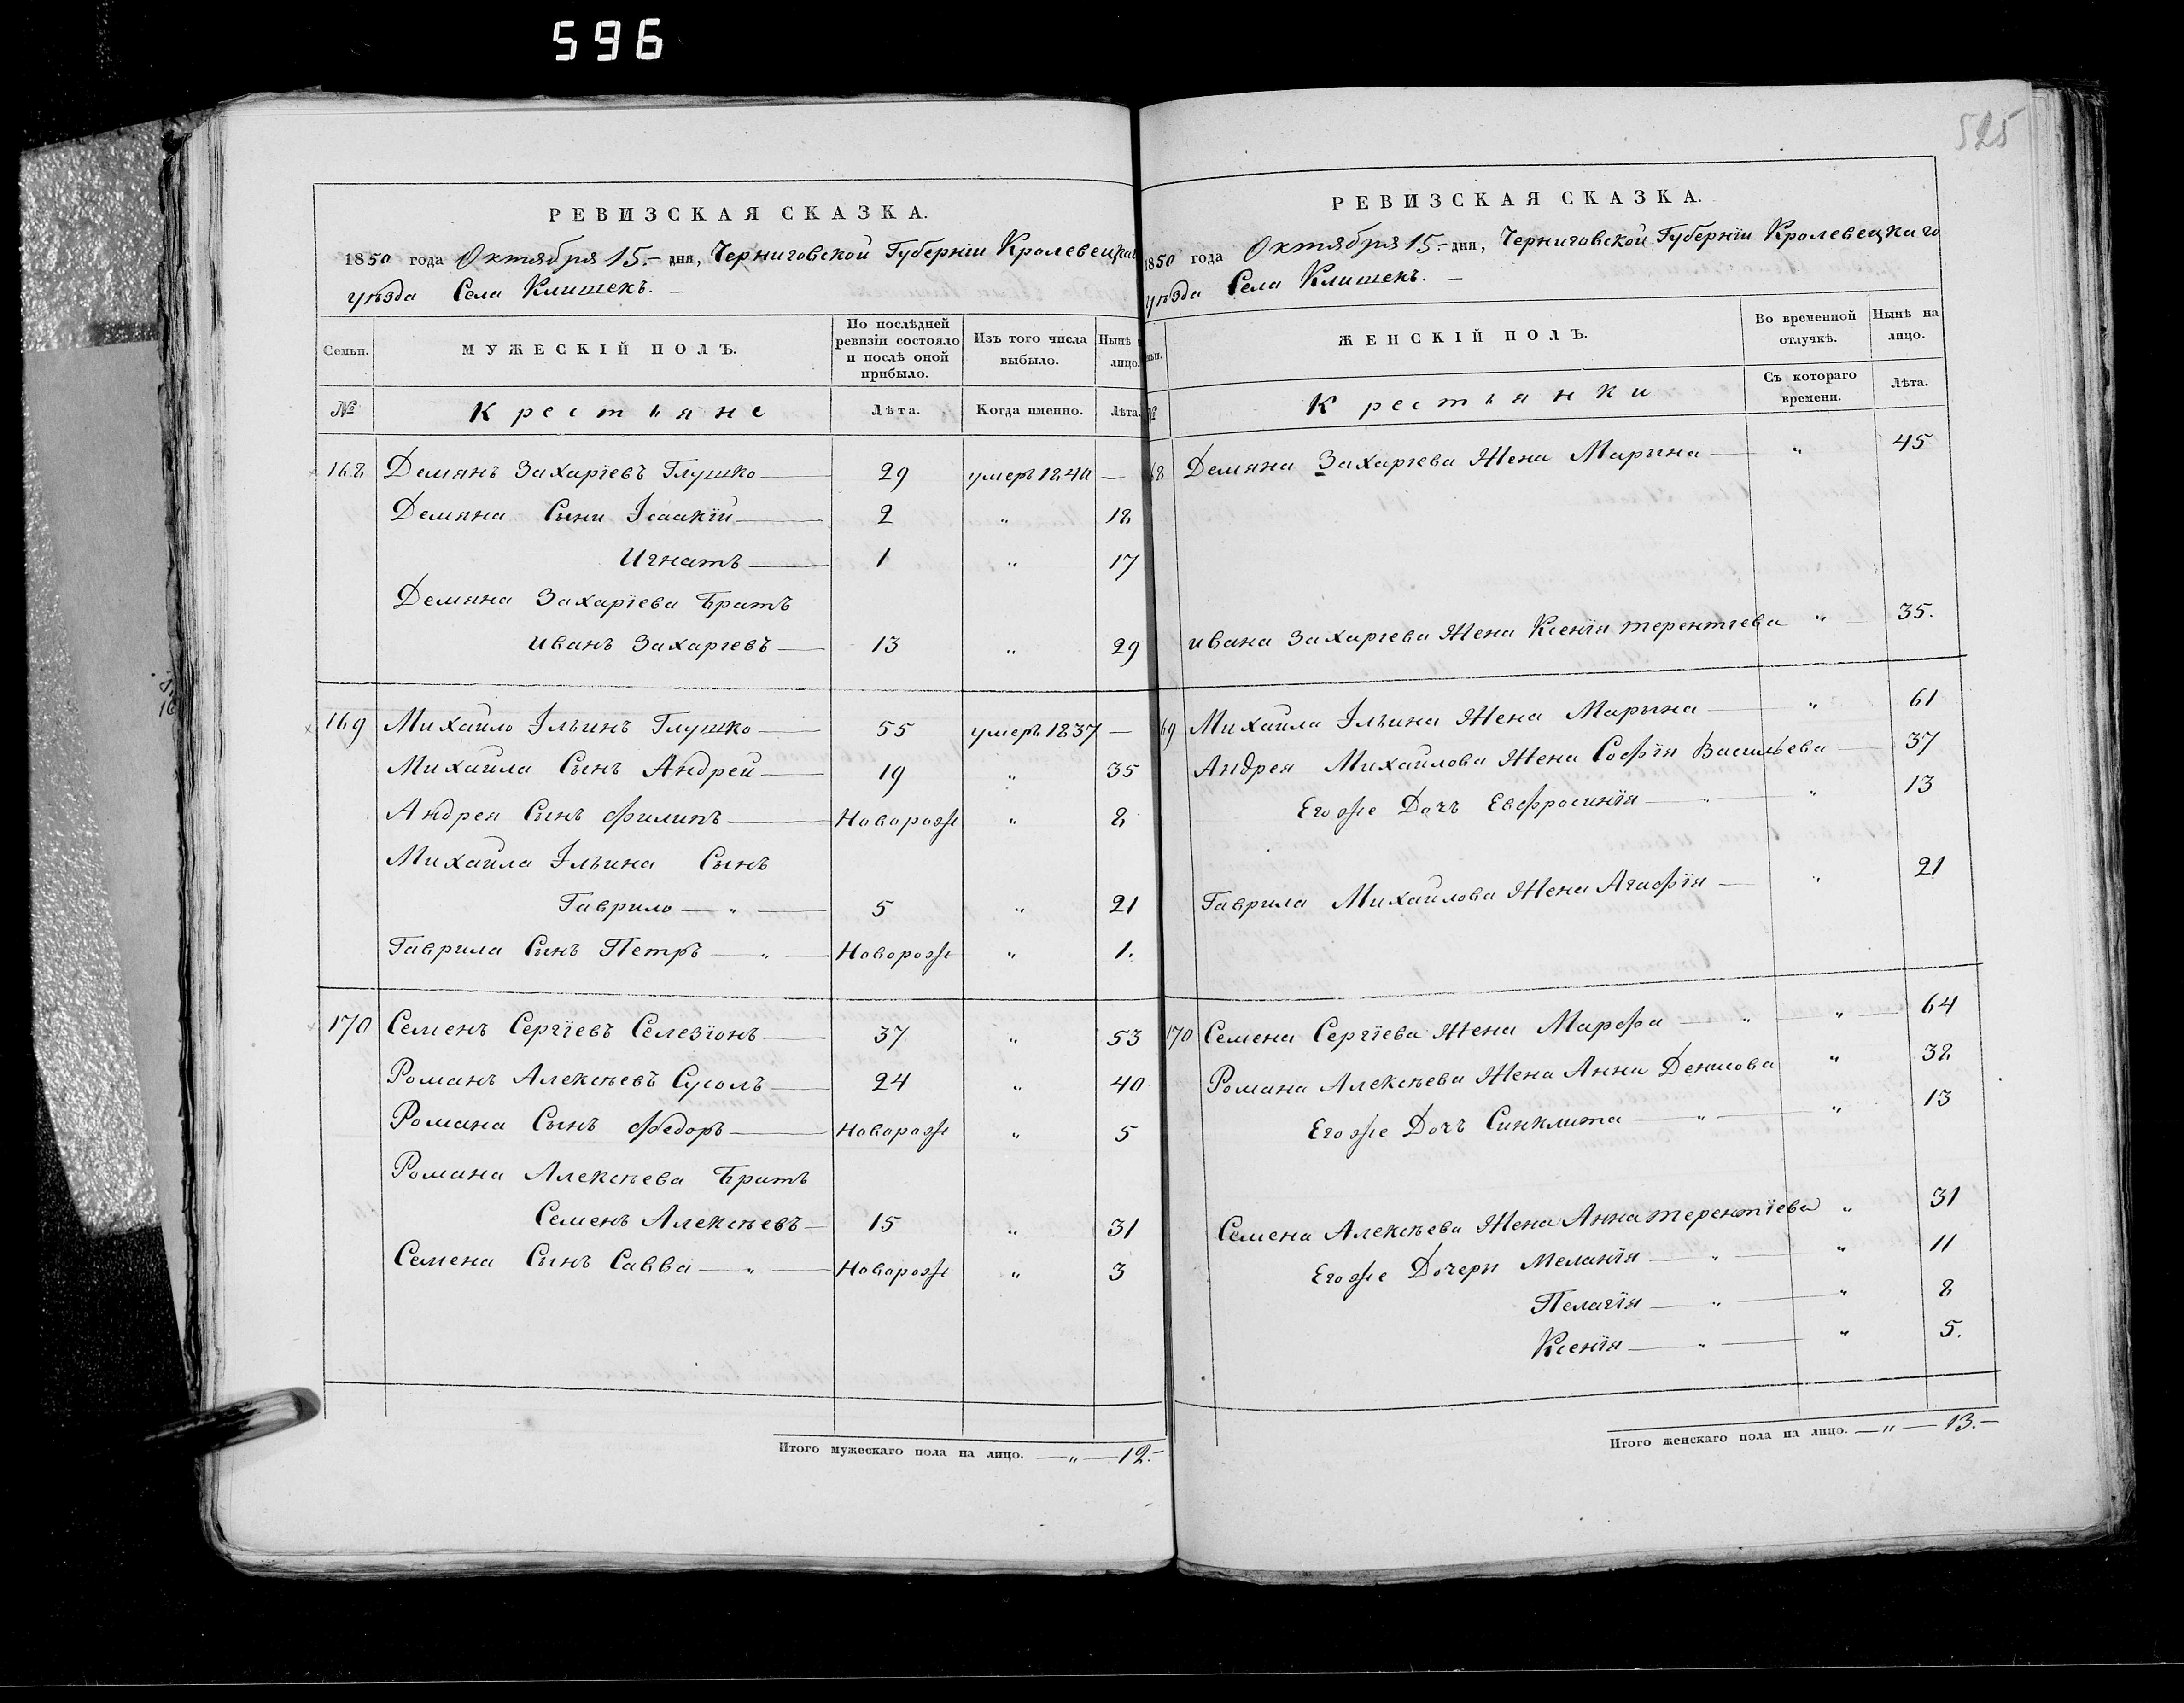 596
525
РЕВИЗСКАЯ СКАЗКА.
1850 года Октября 15.- дня, Черниговской Губерніи Кролевецкаго
уѣзда Села Клишекъ. –
Семьи. МУЖЕСКІЙ ПОЛЪ. По послѣдней ревизіи состояло и послѣ оной прибыло. Изъ того числа выбыло. Нынѣ на лицо.
№ Крестьяне Лѣта. Когда именно. Лѣта.
168 Демянъ Захаріевъ Глушко — 29 умеръ 1840 —
Демяна Сыни Ісаакій — 2 „ 18
Игнатъ — 1 „ 17
Демяна Захаріева Братъ
Иванъ Захаріевъ — 13 „ 29
169 Михайло Ільинъ Глушко — 55 умеръ 1837 —
Михайла Сынъ Андрей — 19 „ 35
Андрея Сынъ Филипъ — Новорож „ 8
Михайла Ільина Сынъ
Гаврило — „ — 5 „ 21
Гаврила Сынъ Петръ — „ — Новорож „ 1.
170 Семенъ Сергіевъ Селезіонъ — 37 „ 53
Романъ Алексѣевъ Сусолъ — 24 „ 40
Романа Сынъ Федоръ — Новорож „ 5
Романа Алексѣева Братъ
Семенъ Алексѣевъ — 15 „ 31
Семена Сынъ Савва — „ — Новорож „ 3
Итого мужескаго пола на лицо. — „ — 12.-
РЕВИЗСКАЯ СКАЗКА.
1850 года Октября 15.- дня, Черниговской Губерніи Кролевецкаго
уѣзда Села Клишекъ. –
ЖЕНСКІЙ ПОЛЪ. Во временной отлучкѣ. Нынѣ на лицо.
№ Крестьянки Съ котораго времени. Лѣта.
68 Демяна Захаріева Жена Марына — „ 45
Ивана Захаріева Жена Ксенія Терентіева „ 35.
69 Михайла Ільина Жена Марына — „ 61
Андрея Михайлова Жена Софія Васильева — 37
Егоже Дочъ Евфросинія — „ — „ 13
Гаврила Михайлова Жена Агафія — „ 21
170 Семена Сергіева Жена Марфа — „ — „ — 64
Романа Алексѣева Жена Анна Денисова „ 38
Егоже Дочъ Синклита — „ — „ 13
Семена Алексѣева Жена Анна Терентіева „ 31
Егоже Дочери Меланія — „ — „ 11
Пелагія — „ — „ 8
Ксенія — „ — „ 5.
Итого женскаго пола на лицо. — „ — 13.–